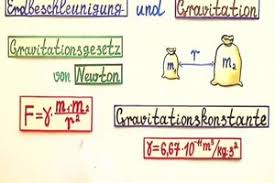 Erdbeschleunigung und Gravitation
Gravitationsgesetz
von Newton
r
m₁ m₂
F=γ·m₁·m₂/r²
Gravitationskonstante
γ=6,67·10⁻¹¹m³/kg·s²